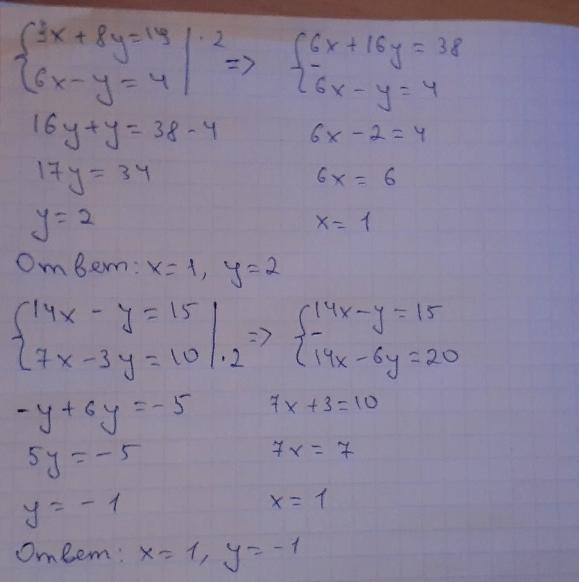 {3x + 8y = 19 | · 2 => {6x + 16y = 38
{6x - y = 4 | - {6x - y = 4
16y + y = 38 - 4 6x - 2 = 4
17y = 34 6x = 6
y = 2 x = 1
Ответ: x = 1, y = 2
{14x - y = 15 | => {14x - y = 15
{7x - 3y = 10 | · 2 - {14x - 6y = 20
-y + 6y = -5 7x + 3 = 10
5y = -5 7x = 7
y = -1 x = 1
Ответ: x = 1, y = -1